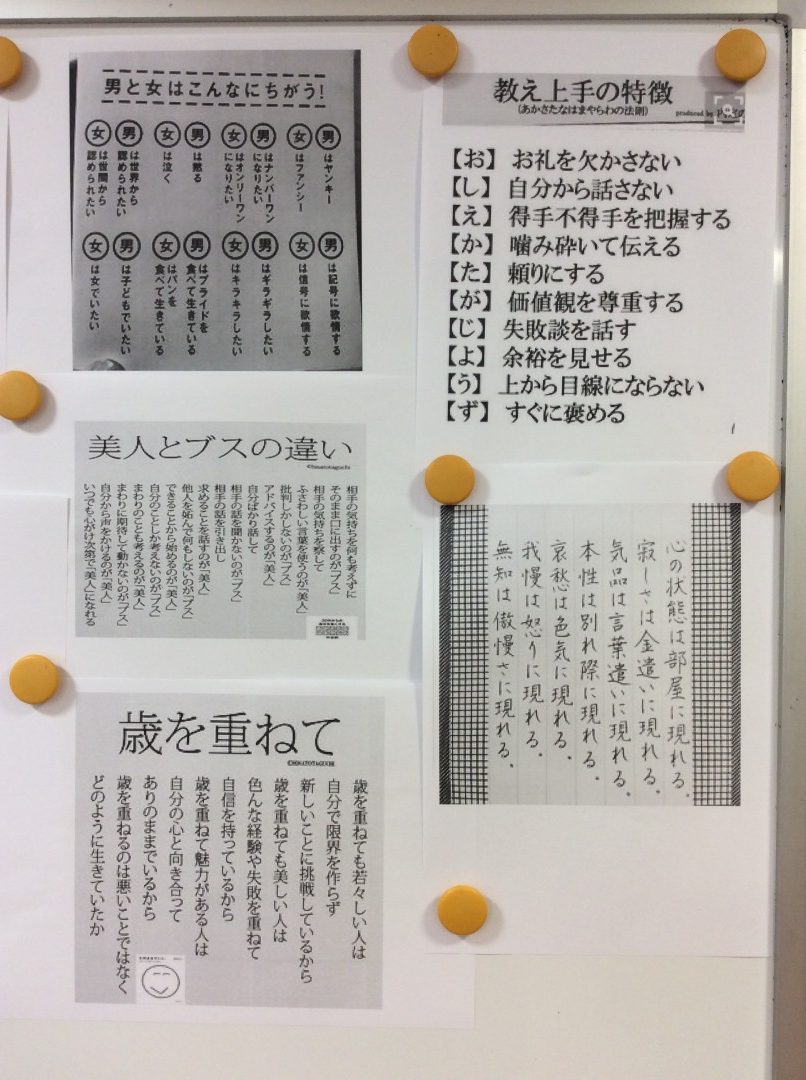 男と女はこんなにちがう!
男はヤンキー
女はファンシー
男はナンバーワンになりたい
女はオンリーワンになりたい
男は黙る
女は泣く
男は世界から認められたい
女は世間から認められたい
男は記号に欲情する
女は信号に欲情する
男はギラギラしたい
女はキラキラしたい
男はプライドを食べて生きている
女はパンを食べて生きている
男は子どもでいたい
女は女でいたい
教え上手の特徴
(あかさたなはまやらわの法則)
produced by
【お】お礼を欠かさない
【し】自分から話さない
【え】得手不得手を把握する
【か】噛み砕いて伝える
【た】頼りにする
【が】価値観を尊重する
【じ】失敗談を話す
【よ】余裕を見せる
【う】上から目線にならない
【ず】すぐに褒める
美人とブスの違い
©hinatotaguchi
相手の気持ちを何も考えずに
そのまま口に出すのが「ブス」
相手の気持ちを察して
ふさわしい言葉を使うのが「美人」
批判しかしないのが「ブス」
アドバイスするのが「美人」
自分ばかり話して
相手の話を聞かないのが「ブス」
相手の話を引き出し
求めることを話すのが「美人」
他人を妬んで何もしないのが「ブス」
できることから始めるのが「美人」
自分のことしか考えないのが「ブス」
まわりのことも考えるのが「美人」
まわりに期待して動かないのが「ブス」
自分から声をかけるのが「美人」
いつでも心がけ次第で「美人」になれる
心の状態は部屋に現れる。
寂しさは金遣いに現れる。
気品は言葉遣いに現れる。
本性は別れ際に現れる。
哀愁は色気に現れる。
我慢は怒りに現れる。
無知は傲慢さに現れる。
歳を重ねて
©HINATOTAGUCHI
歳を重ねても若々しい人は
自分で限界を作らず
新しいことに挑戦しているから
歳を重ねても美しい人は
色んな経験や失敗を重ねて
自信を持っているから
歳を重ねて魅力がある人は
自分の心と向き合って
ありのままでいるから
歳を重ねるのは悪いことではなく
どのように生きていたか